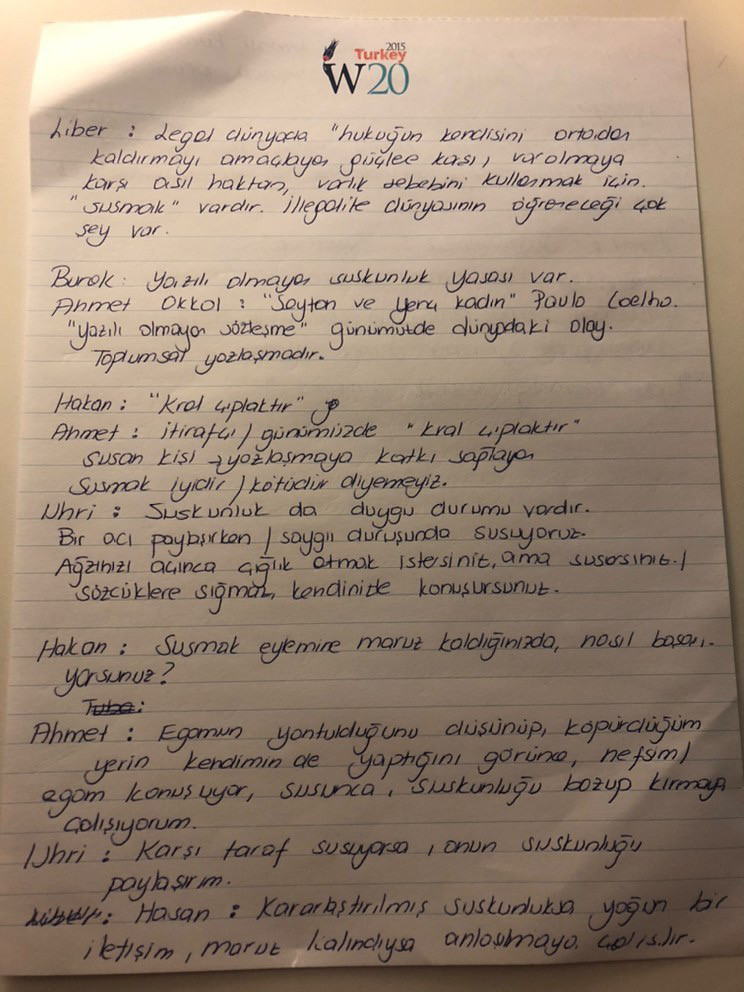 2015
Turkey
W20
Liber : Legal dünyada "hukuğun kendisini ortadan
kaldırmayı amaçlayan güçlee kası, varolmaya
karşı asıl haktan, varlık sebebini kullanmak için.
"susmak" vardır. İllegalite dünyasının öğreneceği çok
şey var.
Burak: Yazılı olmayan suskunluk yasası var.
Ahmet Okkal : "Şeytan ve Genç kadın" Paulo Coelho.
"yazılı olmayan sözleşme" günümüzde dünyadaki olay.
Toplumsal yozlaşmadır.
Hakan : "Kral çıplaktır"
Ahmet : itirafçı / günümüzde "kral çıplaktır"
susan kişi → yozlaşmaya katkı sağlayan
Susmak iyidir / kötüdür diyemeyiz.
Uhri : Suskunluk da duygu durumu vardır.
Bir acı paylaşırken / saygı duruşunda susuyoruz.
Ağzınızı açınca çığlık atmak istersiniz, ama susarsınız. /
sözcüklere sığmaz, kendinizle konuşursunuz.
Hakan : Susmak eylemine maruz kaldığınızda, nasıl başarı.
yorsunuz?
Tuba:
Ahmet : Egomun yontulduğunu düşünüp, köpürdüğüm
yerin kendimin de yaptığını görünce, nefsim /
egom konuşuyor, susunca, suskunluğu bozup kırmaya
çalışıyorum.
Uhri : Karşı taraf susuyorsa, onun suskunluğu
paylaşırım.
Hasan : Kararlaştırılmış suskunluksa yoğun bir
iletişim, maruz kalındıysa anlaşılmaya çalışılır.